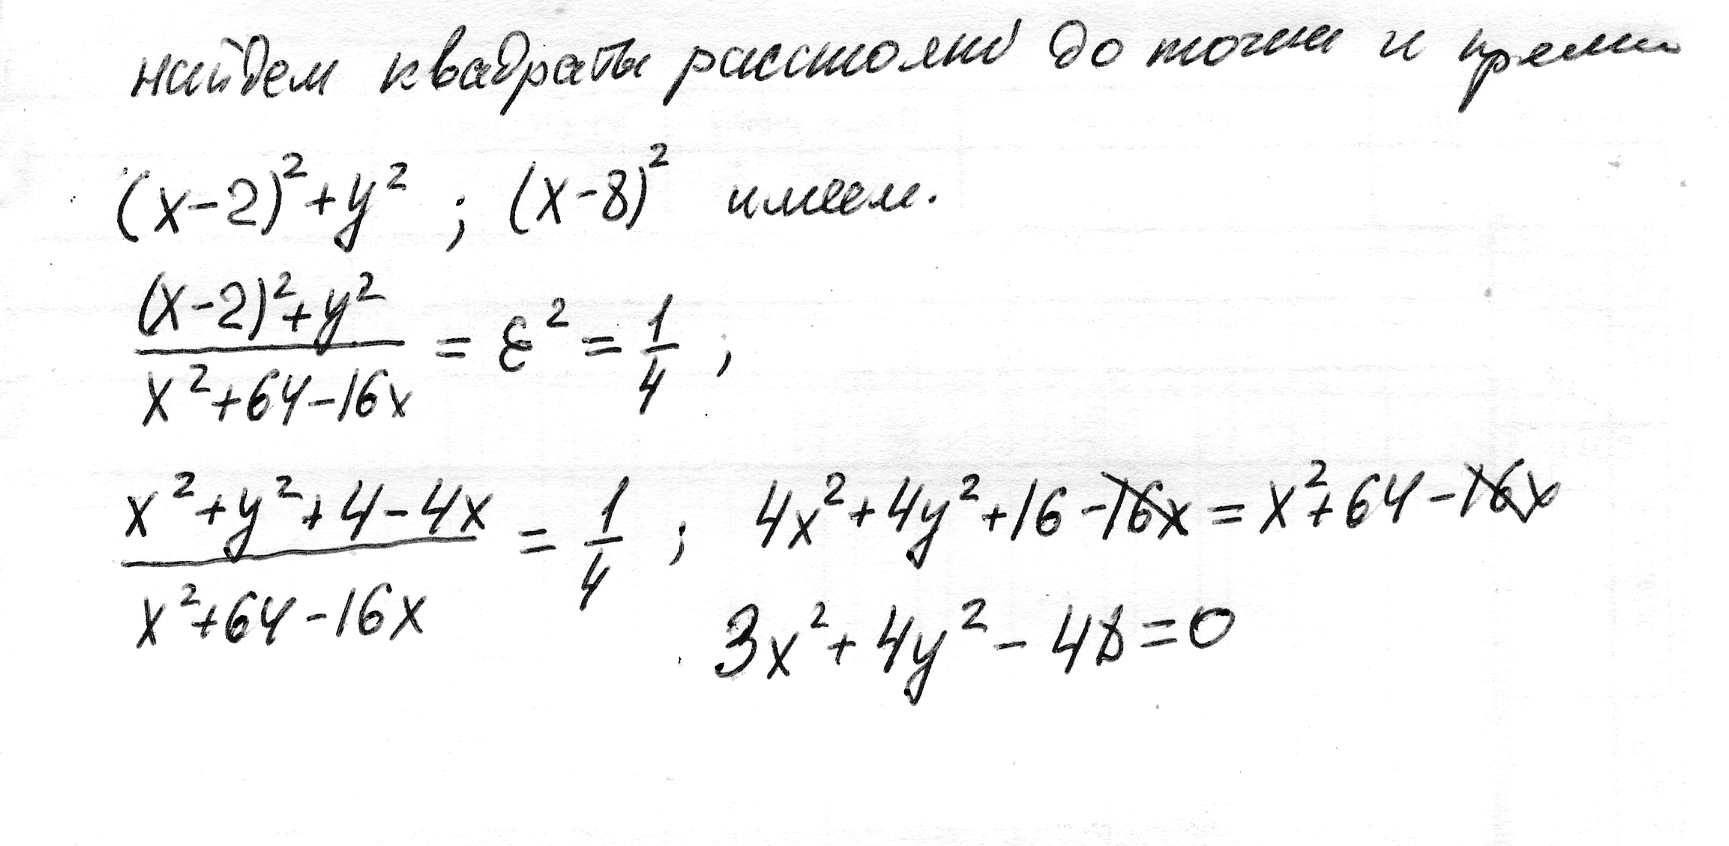 найдем квадраты расстояни до точки и прямой
(x-2)²+y² ; (x-8)² имеем.
(x-2)²+y² / x²+64-16x = ε² = 1/4 ;
x²+y²+4-4x / x²+64-16x = 1/4 ; 4x²+4y²+16-16x = x²+64-16x
3x²+4y²-48=0